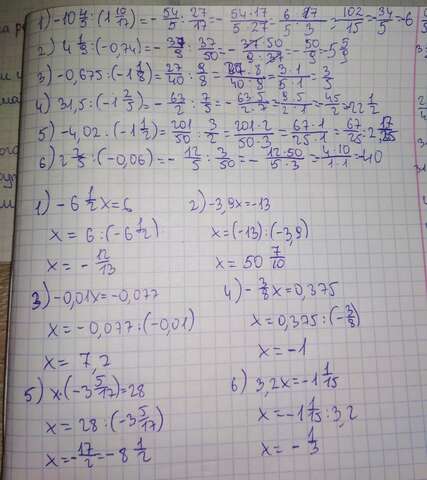 1) -10 4/5 : (1 10/17) = - 54/5 : 27/17 = - 54·17/5·27 = 6·17/5·3 = 102/15 = -34/5 = 6
2) 4 1/9 : (-0,74) = - 37/9 : 37/50 = - 37·50/9·37 = - 50/9 = -5 5/9
3) -0,675 : (-1 1/8) = 27/40 : 9/8 = 27·8/40·9 = 3·1/5·1 = 3/5
4) 31,5 : (-1 2/5) = - 63/2 : 7/5 = - 63·5/2·7 = 9·5/2·1 = 45/2 = 22 1/2
5) -4,02 : (-1 1/2) = 201/50 : 3/2 = 201·2/50·3 = 67·1/25·1 = 67/25 = 2 17/25
6) 2 2/5 : (-0,06) = - 12/5 : 3/50 = - 12·50/5·3 = 4·10/1·1 = -40
1) -6 1/2 x = 6
x = 6 : (-6 1/2)
x = - 12/13
2) -3,9x = -13
x = (-13) : (-3,9)
x = 50 7/10
3) -0,01x = -0,077
x = -0,077 : (-0,01)
x = 7,2
4) - 3/8 x = 0,375
x = 0,375 : (- 3/8)
x = -1
5) x · (-3 5/17) = 28
x = 28 : (-3 5/17)
x = - 17/2 = -8 1/2
6) 3,2x = -1 1/15
x = -1 1/15 : 3,2
x = - 1/3